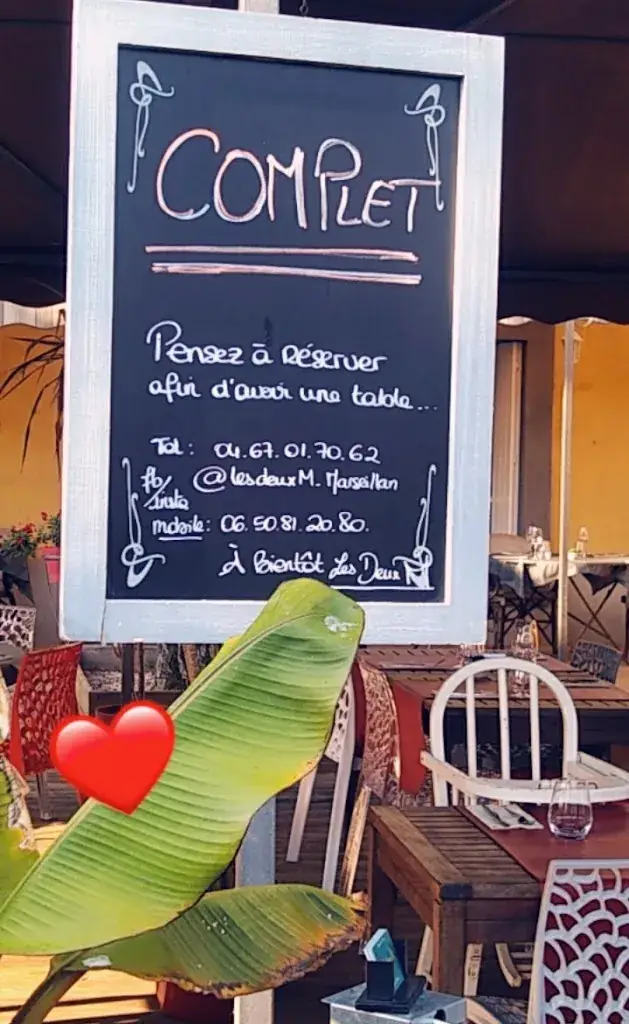 COMPLET
Pensez à Réserver
afin d'avoir une table...
Tel : 04.67.01.70.62
fb/insta @lesdeuxM.Marseillan
mobile : 06.50.81.20.80.
À Bientôt Les Deux M